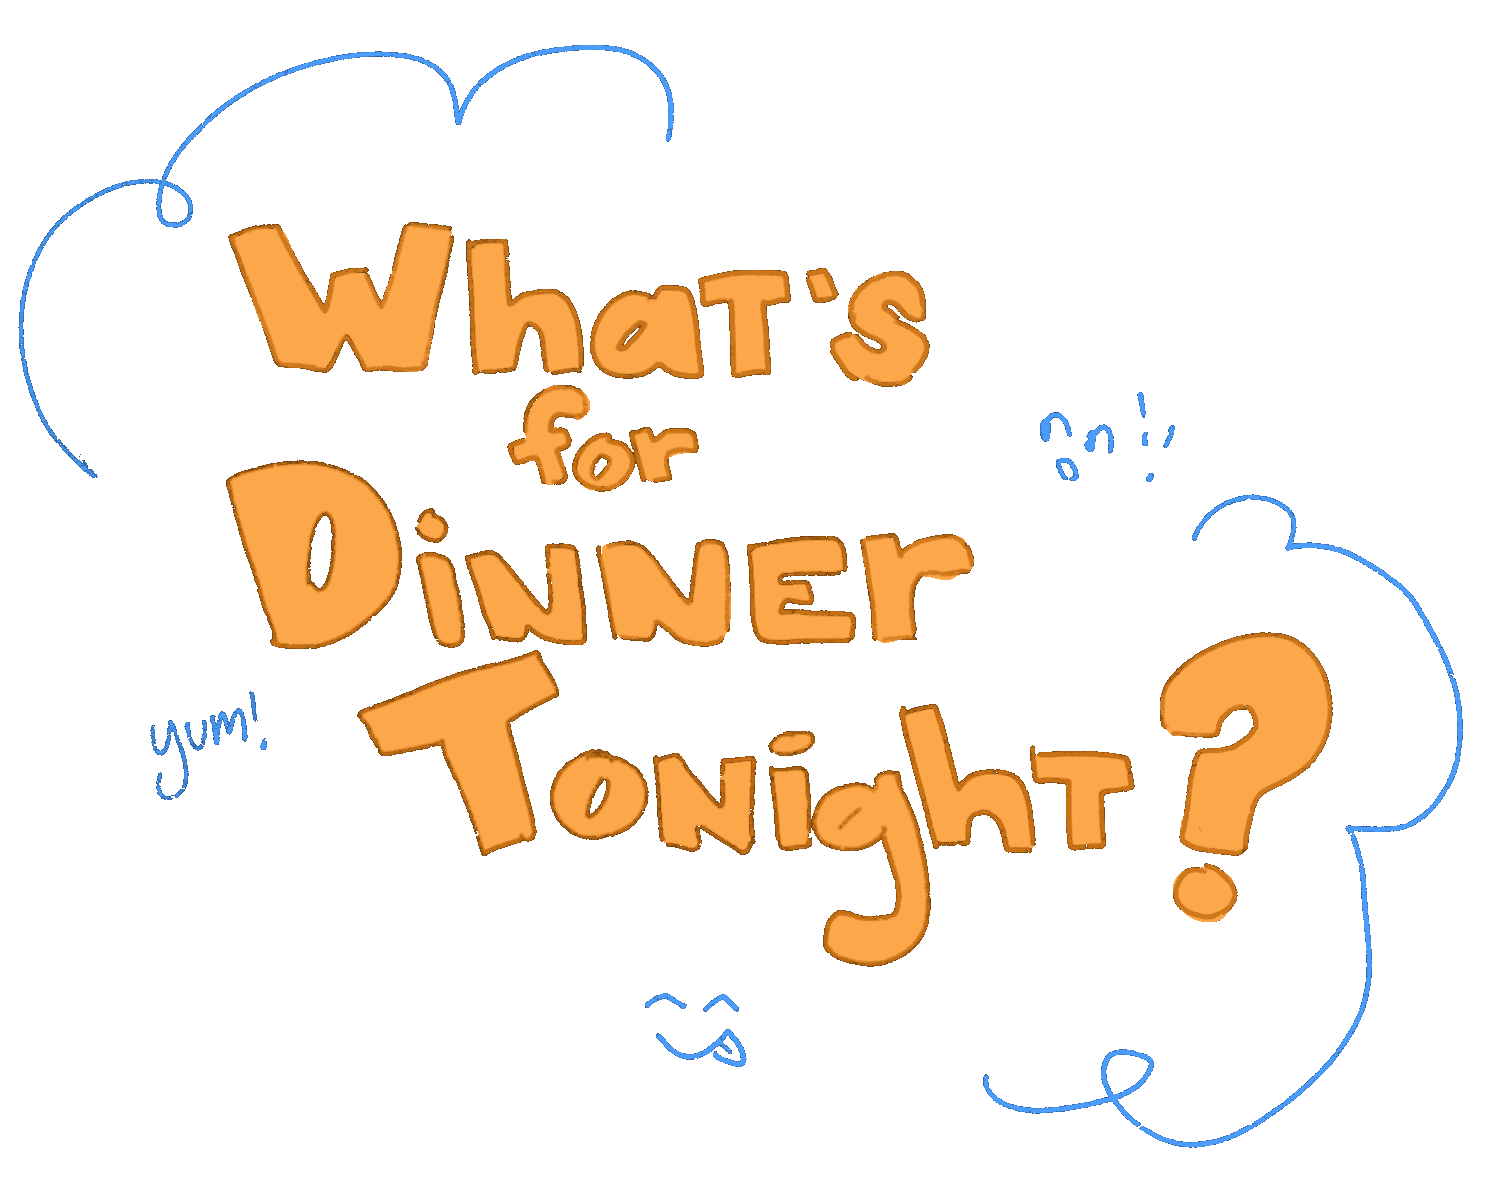 What's
for
Dinner
Tonight?
yum!